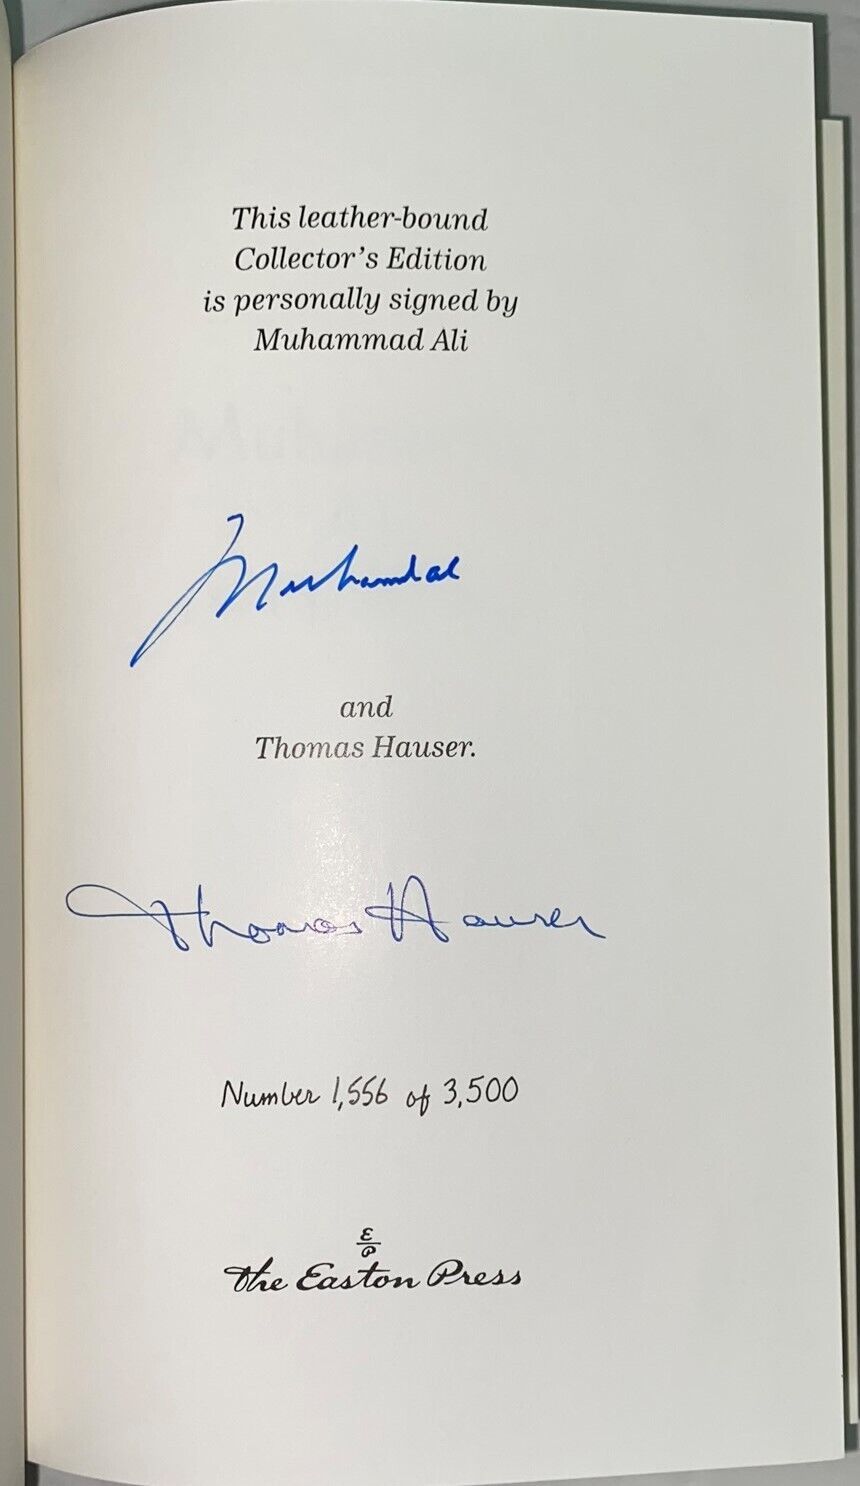 This leather-bound
Collector's Edition
is personally signed by
Muhammad Ali
Muhammad Ali
and
Thomas Hauser.
Thomas Hauser
Number 1,556 of 3,500
E
P
The Easton Press